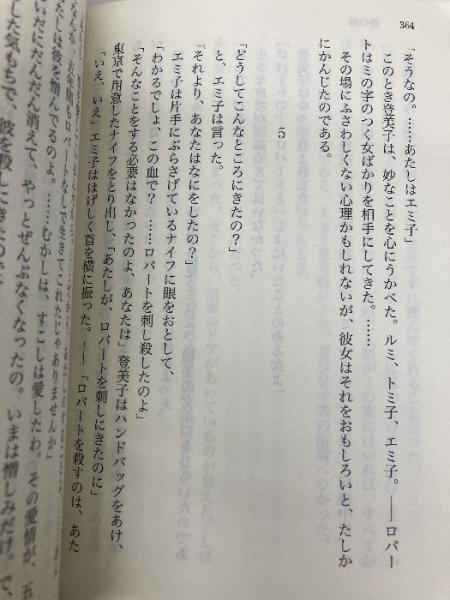 364
「そうなの。……あたしはエミ子」
このとき登美子は、妙なことを心にうかべた。ルミ、トミ子、エミ子。――ロバー
トはミの字のつく女ばかりを相手にしてきた。……
その場にふさわしくない心理かもしれないが、彼女はそれをおもしろいと、たしか
にかんじたのである。
5
「どうしてこんなところにきたの？」
と、エミ子は言った。
「それより、あなたはなにをしたの？」
エミ子は片手にぶらさげているナイフに眼をおとして、
「わかるでしょ、この血で？……ロバートを刺し殺したのよ」
「そんなことをする必要はなかったのよ、あなたは」登美子はハンドバッグをあけ、
東京で用意したナイフをとり出し、「あたしが、ロバートを刺しにきたのに」
「いえ、いえ」エミ子ははげしく首を横に振った。――「ロバートを殺すのは、あた
ロバートなしで生きて
ありませんか」
たしは彼を憎んでるのよ。……むかしは、すこしは愛したわ。その愛情が、五
いだにだんだん消えて、やっとぜんぶなくなったの。いまは憎しみだけ。で、
した気もちで、彼を殺しにきたのです